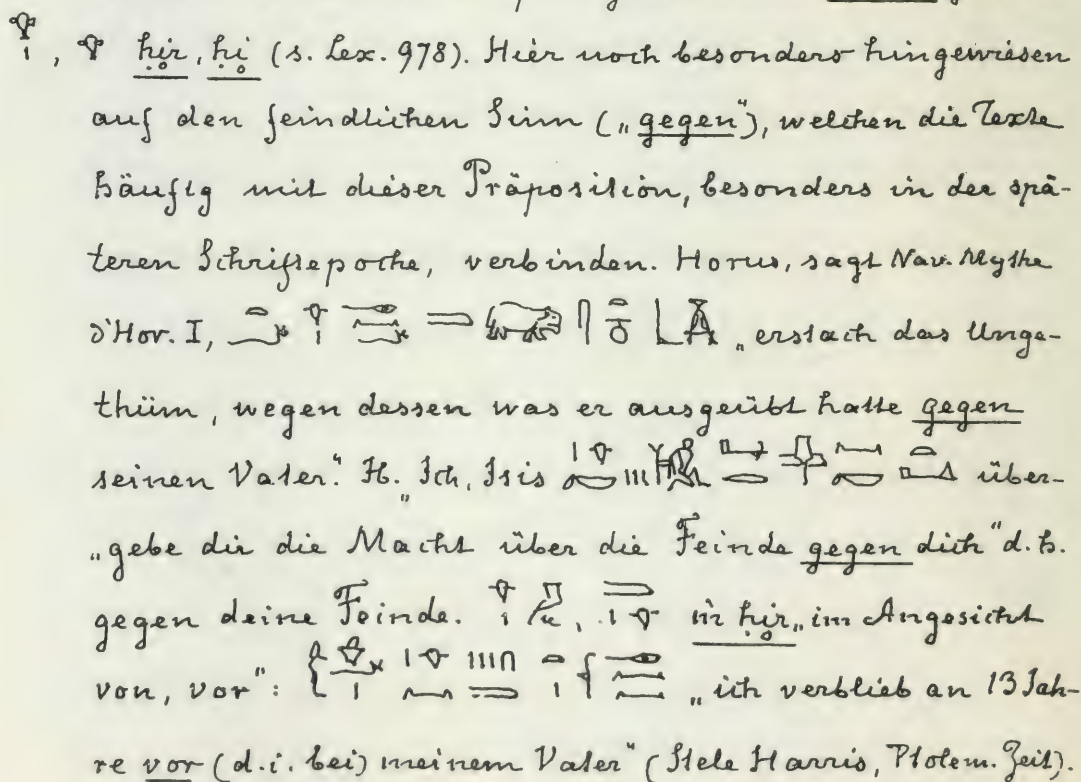 ḥir, ḥi (s. Lex. 978). Hier noch besonders hingewiesen
auf den feindlichen Sinn („gegen“), welchen die Texte
häufig mit dieser Präposition, besonders in der spä-
teren Schriftepoche, verbinden. Horus, sagt Nav. Mythe
d'Hor. I, „erstach das Unge-
thüm, wegen dessen was er ausgeübt hatte gegen
seinen Vater“. Ib. „Ich, Isis über-
„gebe dir die Macht über die Feinde gegen dich“ d.h.
gegen deine Feinde. m ḥir „im Angesicht
von, vor“: „ich verblieb an 13 Jah-
re vor (d.i. bei) meinem Vater“ (Stele Harris, Ptolem. Zeit).